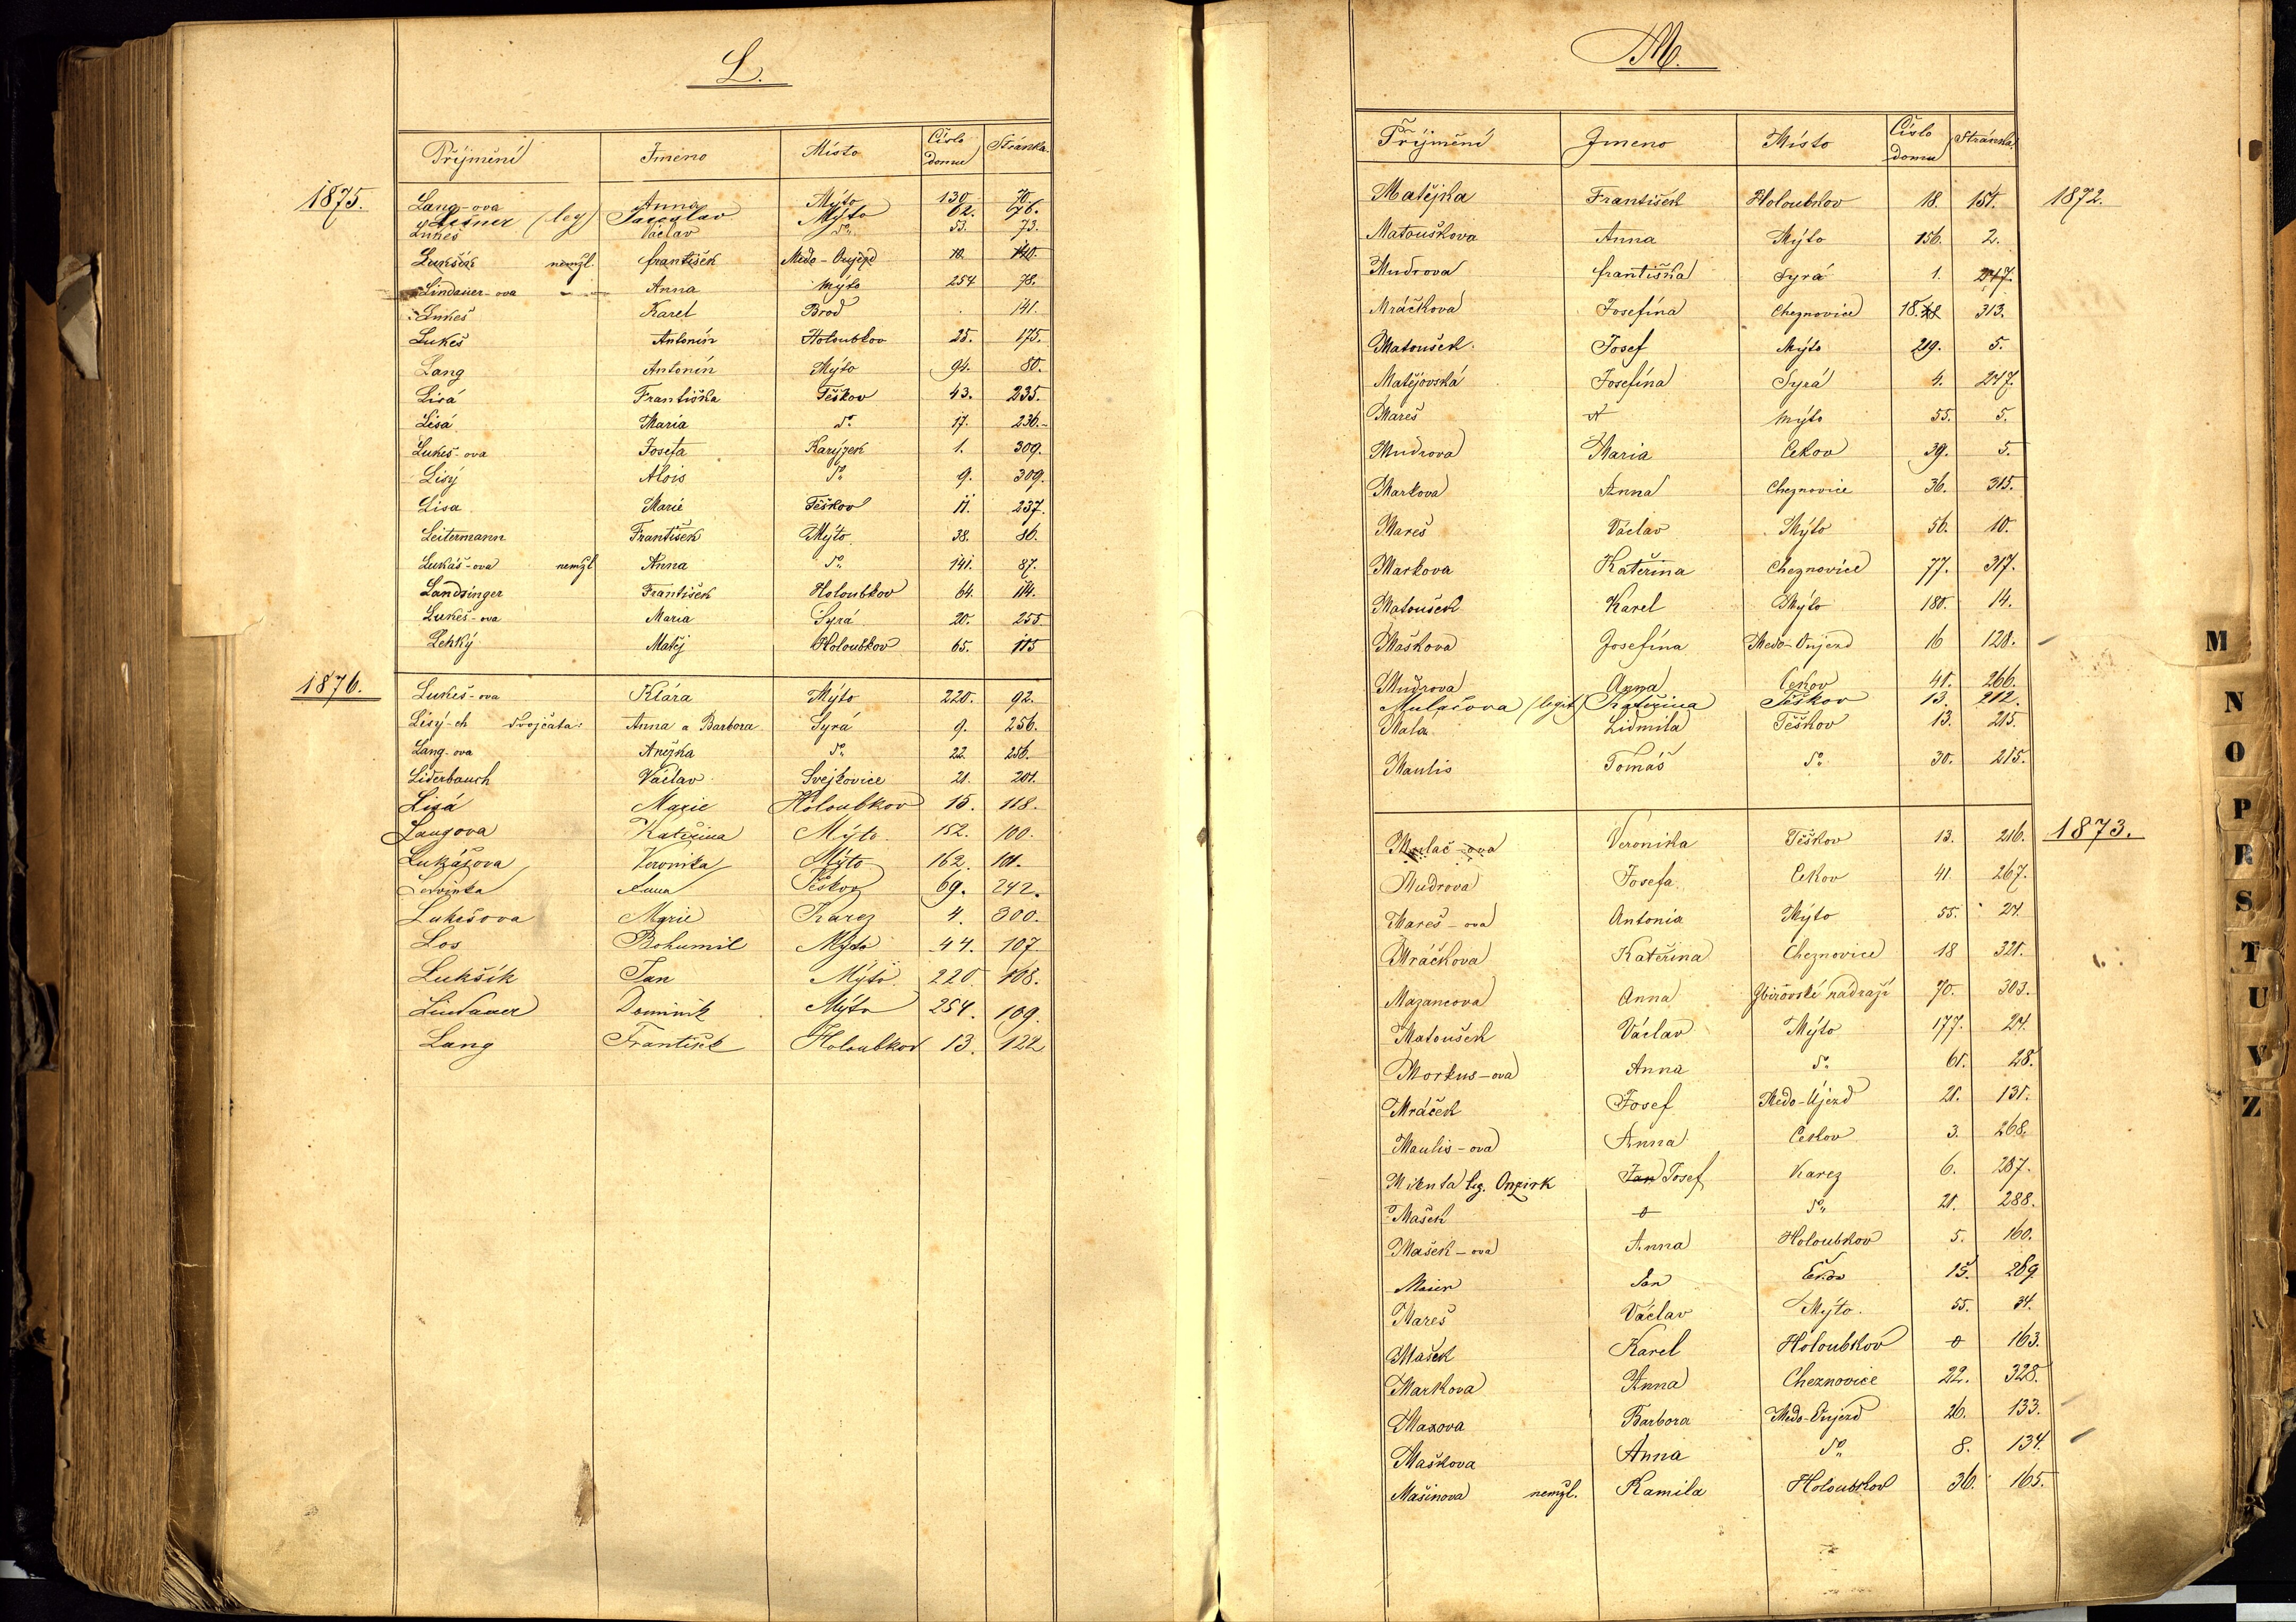 L.
Příjmění Jméno Místo Číslo domu Stránka
1875.
Lang-ova Anna Mýto 130. 70.
Lešner (leg) Jaroslav Mýto 62. 76.
Lukeš Václav do 53. 73.
Lukšík nemžl. františek Medo-Oujezd 10. 140.
Lindauer-ova Anna Mýto 254 78.
Lukeš Karel Brod 141.
Lukeš Antonín Holoubkov 25. 175.
Lang Antonín Mýto 94. 80.
Lisá Františka Těškov 43. 235.
Lisá Maria do 17. 236.
Lukeš-ova Josefa Karýzek 1. 309.
Lisý Alois do 9. 309.
Lisa Marie Těškov 11. 237.
Leitermann František Mýto 38. 86.
Lukáš-ova nemžl Anna do 141. 87.
Landsinger František Holoubkov 64. 114.
Lukeš-ova Maria Syrá 20. 255.
Lehký Matěj Holoubkov 65. 115
1876.
Lukeš-ova Klára Mýto 220. 92.
Lisý-ch dvojčata: Anna a Barbora Syrá 9. 256.
Lang-ova Anežka do 22. 256.
Liderbauch Václav Svejkovice 21. 201.
Lisá Marie Holoubkov 15. 118.
Langova Kateřina Mýto 152. 100.
Lukášova Veronika Mýto 162. 101.
Anna Těškov 69. 242.
Lukešova Marie Karez 4. 300.
Los Bohumil Mýto 44. 107.
Lukšík Jan Mýto 220. 108.
Lindauer Dominik Mýto 254. 109.
Lang František Holoubkov 13. 122
M.
Příjmění Jmeno Místo Číslo domu Stránka
Matějka František Holoubkov 18. 154. 1872.
Matouškova Anna Mýto 156. 2.
Mudrova františka Syrá 1. 247.
Mráčkova Josefína Cheznovice 18. 313.
Matoušek Josef Mýto 219. 5.
Matějovská Josefína Syrá 4. 247.
Mareš Mýto 55. 5.
Mudrova Maria Cekov 39. 5.
Markova Anna Cheznovice 36. 315.
Mareš Václav Mýto 56. 10.
Markova Kateřina Cheznovice 77. 317.
Matoušek Karel Mýto 180. 14.
Maškova Josefína Medo-Oujezd 16 128.
Mudrova Anna Cekov 41. 266.
Mulačova (legit) Kateřina Těškov 13. 212.
Mala Lidmila Těškov 13. 215.
Maulis Tomáš do 30. 215.
Mulač-ova Veronika Těškov 13. 216. 1873.
Mudrova Josefa Cekov 41. 267.
Mareš-ova Antonia Mýto 55. 24.
Mráčkova Kateřina Cheznovice 18 321.
Mazancova Anna Zbirovské nádraží 70. 303.
Matoušek Václav Mýto 177. 24.
Morkus-ova Anna do 61. 28.
Mráček Josef Medo-Újezd 21. 131.
Maulis-ova Anna Cekov 3. 268.
Mikuta leg. Onzirk Jan Josef Karez 6. 287.
Mašek do 21. 288.
Mašek-ova Anna Holoubkov 5. 160.
Maier Jan 15. 269
Mareš Václav Mýto. 55. 34.
Mašek Karel Holoubkov 0 163.
Markova Anna Cheznovice 22. 328.
Maxova Barbora Medo-Oujezd 26. 133.
Maškova Anna do 8. 134.
Mašinova nemžl. Kamila Holoubkov 36. 165.
M
N
O
P
R
S
T
U
V
Z